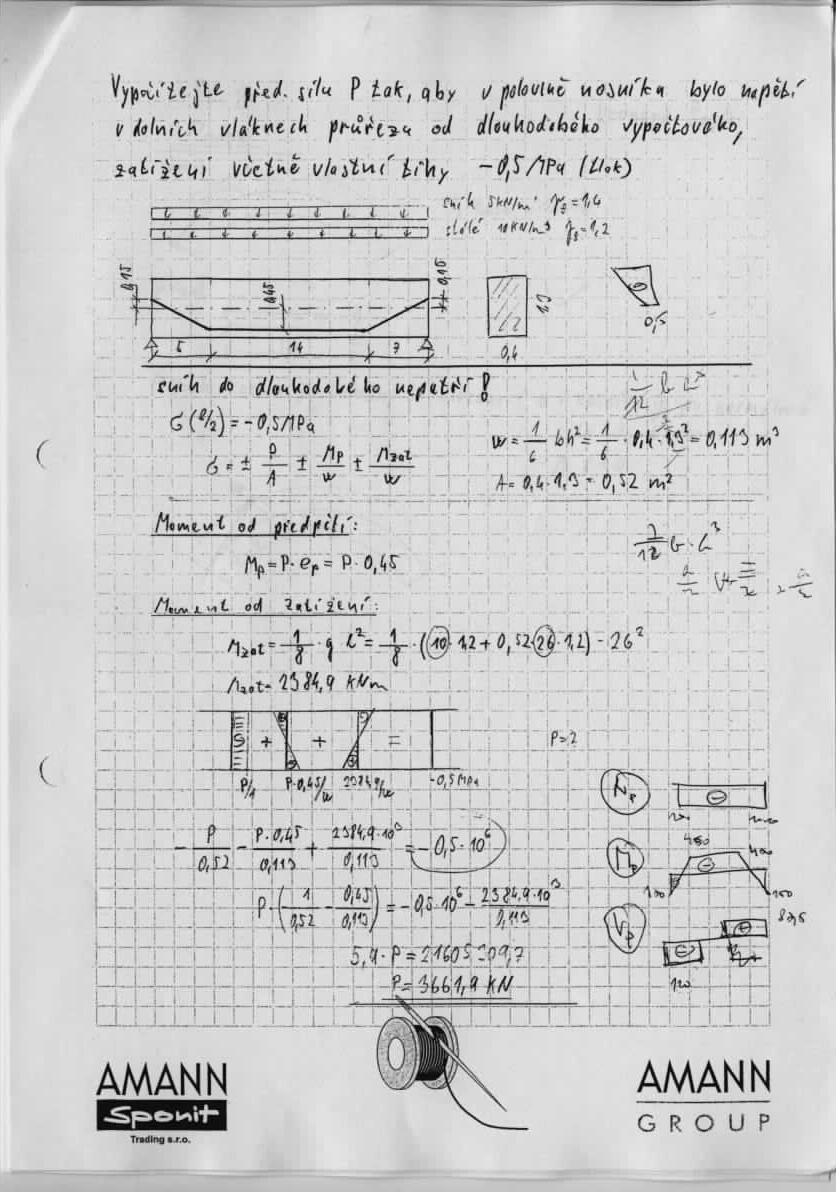 Vypočítejte před. sílu P tak, aby v polovině nosníku bylo napětí
v dolních vláknech průřezu od dlouhodobého výpočtového,
zatížení včetně vlastní tíhy -0,5 MPa (tlak)
sníh 5kN/m' γg=1,4
stálé 10KN/m' γg=1,2
0,15 0,45 0,15
1,3
0,5
5 14 7 0,4
sníh do dlouhodobého nepatří!
1/12 b h³
σ(l/2) = -0,5MPa
w = 1/6 bh² = 1/6 · 0,4 · 1,3² = 0,113 m³
σ = ± P/A ± Mp/w ± Mzat/w
A = 0,4 · 1,3 = 0,52 m²
Moment od předpětí:
1/12 b · h³
Mp = P · ep = P · 0,45
Moment od zatížení:
Mzat = 1/8 · q l² = 1/8 · (10 · 1,2 + 0,52 · 26 · 1,2) - 26²
Mzat = 2384,9 kNm
+ + =
P=?
P/A P·0,45/w 2384,9/w -0,5MPa
Np
- P/0,52 - P·0,45/0,113 + 2384,9·10³/0,113 = -0,5·10⁶
Mp
P·(- 1/0,52 - 0,45/0,113) = -0,5·10⁶ - 2384,9·10³/0,113
Vp
5,9 · P = 21605309,7
P = 3661,9 KN
120
AMANN
Sponit
Trading s.r.o.
AMANN
GROUP